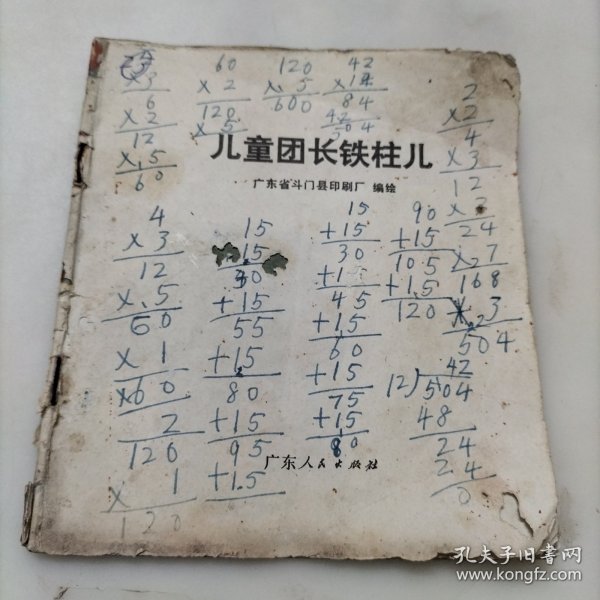 60
× 2
120
× 5
120
× 5
600
42
× 12
84
42
504
× 3
6
× 2
12
× 5
60
2
× 2
4
× 3
12
× 2
24
× 7
168
× 3
504
儿童团长铁柱儿
广东省斗门县印刷厂 编绘
4
× 3
12
× 5
60
× 1
×60
2
120
× 1
120
15
15
30
+15
55
+15
80
+15
95
+15
15
+15
30
+15
45
+15
60
+15
75
+15
80
90
+15
105
+15
120
42
12)504
48
24
24
0
广东人民出版社
孔夫子旧书网
www.kongfz.com